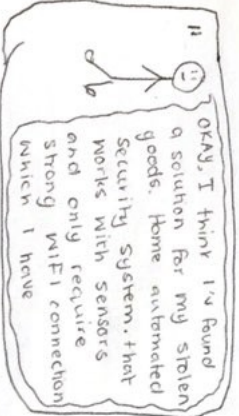 11
OKAY, I think I'v found
a solution for my stolen
goods. Home automated
security system. that
works with sensors
and only require
strong WIFI connection
which I have